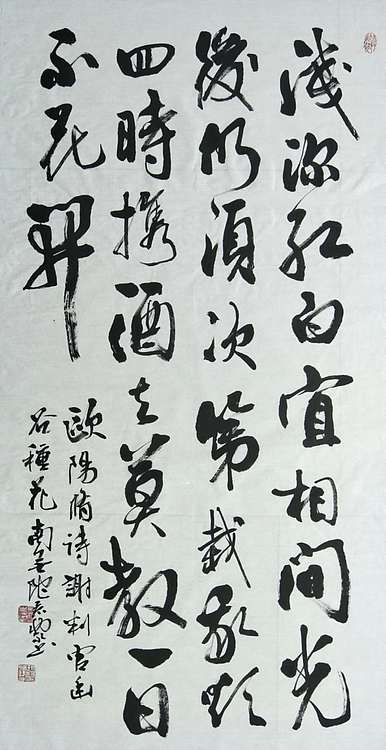 淺深紅白宜相間先
後仍須次第栽我欲
四時携酒去莫教一日
不花開
歐陽脩詩謝判官幽
谷種花